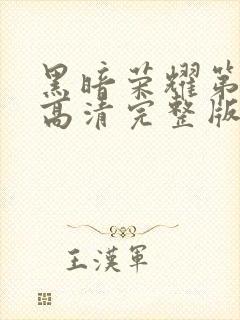 黑暗荣耀第
高清完整版
王漢軍